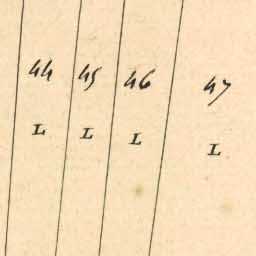 44 45 46 47
L L L L